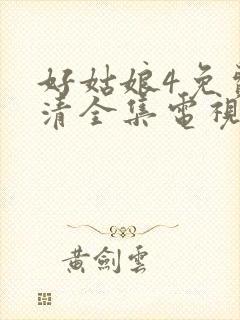 好姑娘4免
清全集電視
黃劍雲